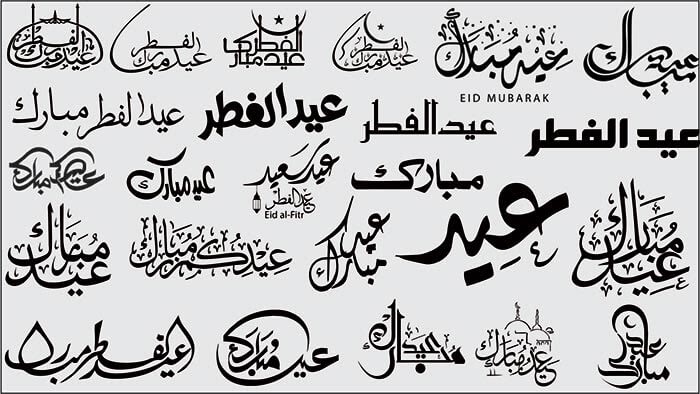 عيد الفطر مبارك
عيد الفطر مبارك
عيد الفطر مبارك
عيد الفطر مبارك
عيد مبارك
EID MUBARAK
عيد مبارك
عيد الفطر مبارك
عيد الفطر
عيد الفطر
عيد الفطر
عيد مبارك
عيد مبارك
عيد سعيد
عيد الفطر
Eid al-Fitr
مبارك
عيد مبارك
عيدكم مبارك
عيد مبارك
عيد
عيد مبارك
عيد فطر مبارك
عيد مبارك
عيد مبارك
عيد مبارك
عيد مبارك